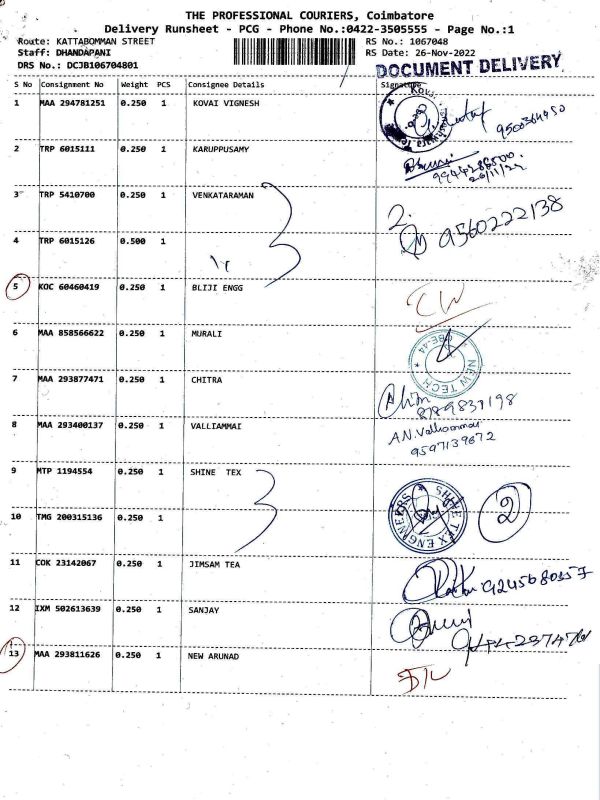 THE PROFESSIONAL COURIERS, Coimbatore
Delivery Runsheet - PCG - Phone No.:0422-3505555 - Page No.:1
Route: KATTABOMMAN STREET RS No.: 1067048
Staff: DHANDAPANI RS Date: 26-Nov-2022
DRS No.: DCJB106704801 DOCUMENT DELIVERY
S No Consignment No Weight PCS Consignee Details Signature
1 MAA 294781251 0.250 1 KOVAI VIGNESH
9500364950
2 TRP 6015111 0.250 1 KARUPPUSAMY
9944286500
26/11/22
3 TRP 5410700 0.250 1 VENKATARAMAN
2. 9560222138
4 TRP 6015126 0.500 1
5 KOC 60460419 0.250 1 BLIJI ENGG
6 MAA 858566622 0.250 1 MURALI
CBE-44 NEW TECH
7 MAA 293877471 0.250 1 CHITRA
8789837198
8 MAA 293400137 0.250 1 VALLIAMMAI
A.N.Valliammai
9597139672
9 MTP 1194554 0.250 1 SHINE TEX
SHINE TEX ENGINEERS 2
10 TMG 200315136 0.250 1
11 COK 23142067 0.250 1 JIMSAM TEA
9245680357
12 IXM 502613639 0.250 1 SANJAY
13 MAA 293811626 0.250 1 NEW ARUNAD